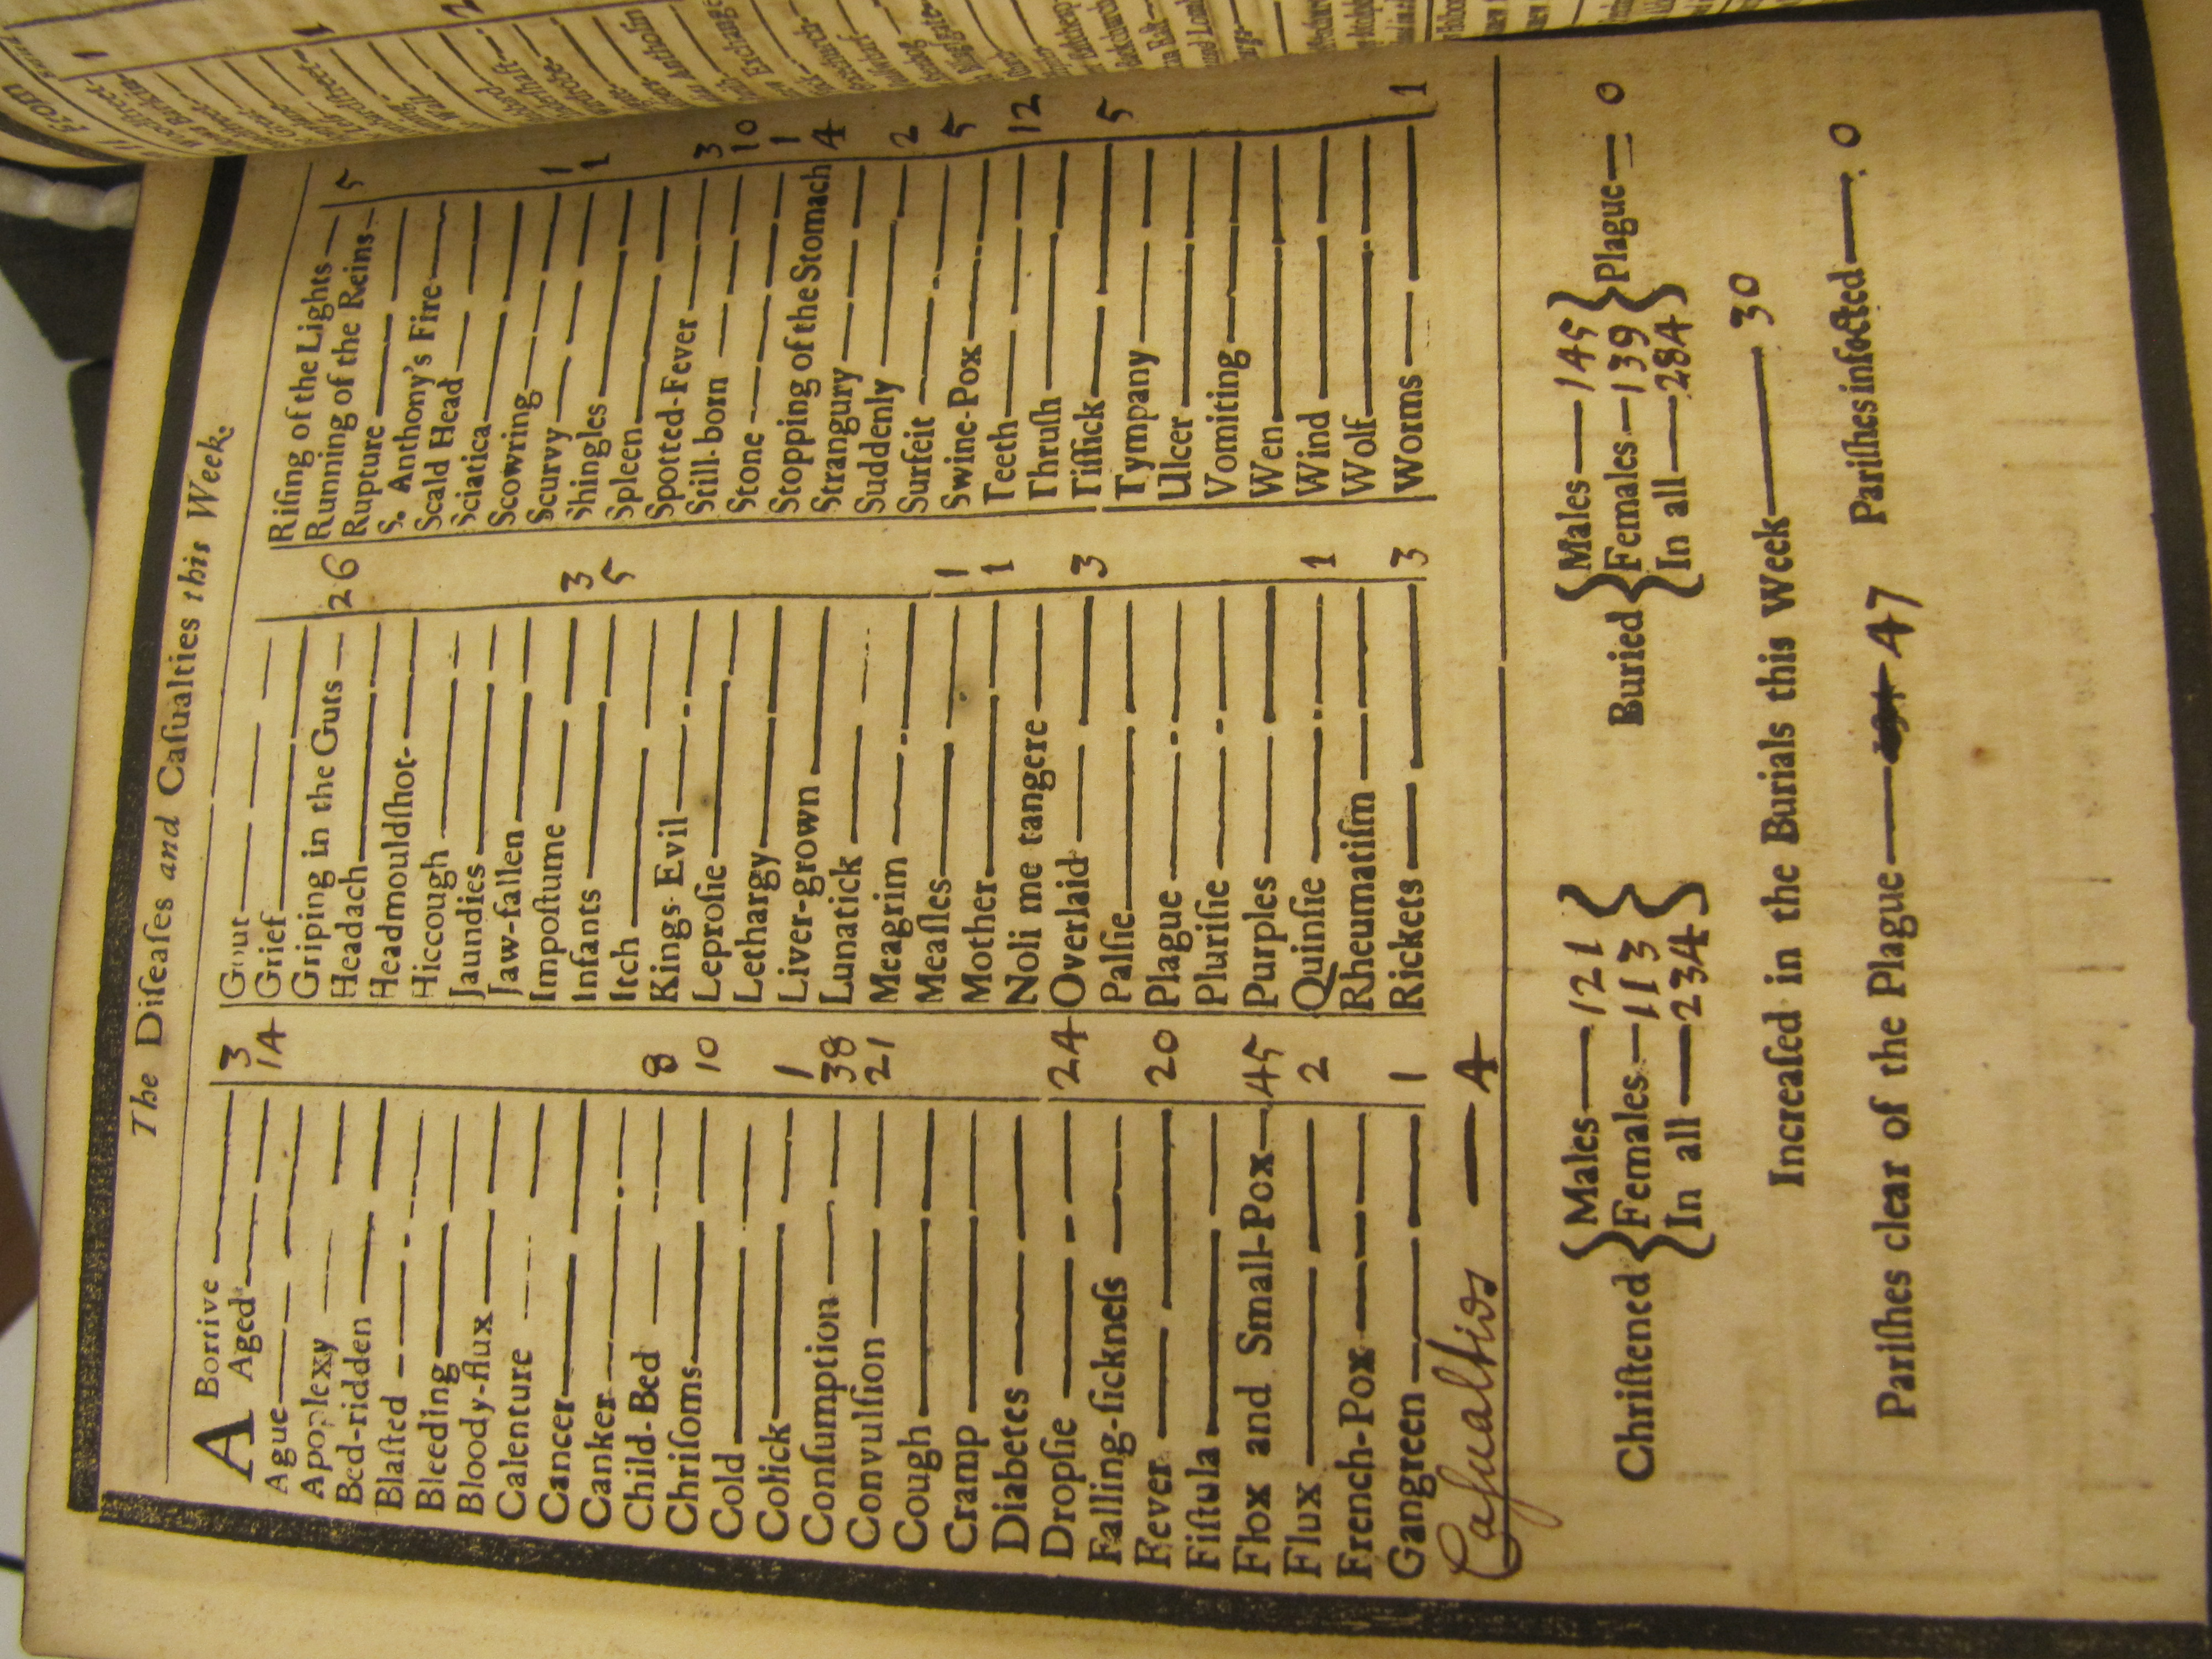 The Diſeaſes and Caſualties this Week.
Abortive 3
Aged 14
Ague
Apoplexy
Bed-ridden
Blaſted
Bleeding
Bloody-flux
Calenture
Cancer
Canker
Child-Bed 8
Chriſoms 10
Cold
Colick 1
Conſumption 38
Convulſion 21
Cough
Cramp
Diabetes
Dropſie 24
Falling-ſickneſs
Fever 20
Fiſtula
Flox and Small-Pox 45
Flux 2
French-Pox
Gangreen 1
Casualties 4
Gout
Grief
Griping in the Guts 26
Headach
Headmouldſhot
Hiccough
Jaundies
Jaw-fallen
Impoſtume 3
Infants 5
Itch
Kings Evil
Leproſie
Lethargy
Liver-grown
Lunatick
Meagrim
Meaſles 1
Mother 1
Noli me tangere
Overlaid 3
Palſie
Plague
Pluriſie
Purples
Quinſie 1
Rheumatiſm
Rickets 3
Riſing of the Lights 5
Running of the Reins
Rupture
S. Anthony's Fire
Scald Head
Sciatica
Scowring 1
Scurvy 1
Shingles
Spleen
Spotted-Fever 3
Still-born 10
Stone 1
Stopping of the Stomach 4
Strangury
Suddenly 2
Surfeit 5
Swine-Pox
Teeth 12
Thruſh
Tiſſick 5
Tympany
Ulcer
Vomiting
Wen
Wind
Wolf
Worms 1
Chriſtened { Males—121
Females—113
In all—234 }
Buried { Males—145
Females—139
In all—284 } Plague—0
Increaſed in the Burials this Week—30
Pariſhes clear of the Plague—47 Pariſhes infected—0